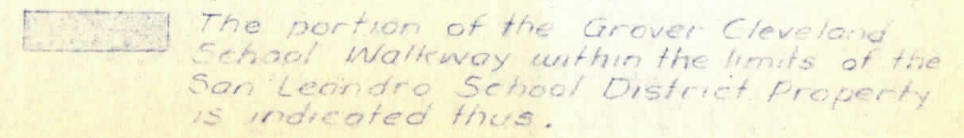 The portion of the Grover Cleveland
School Walkway within the limits of the
San Leandro School District Property
is indicated thus.